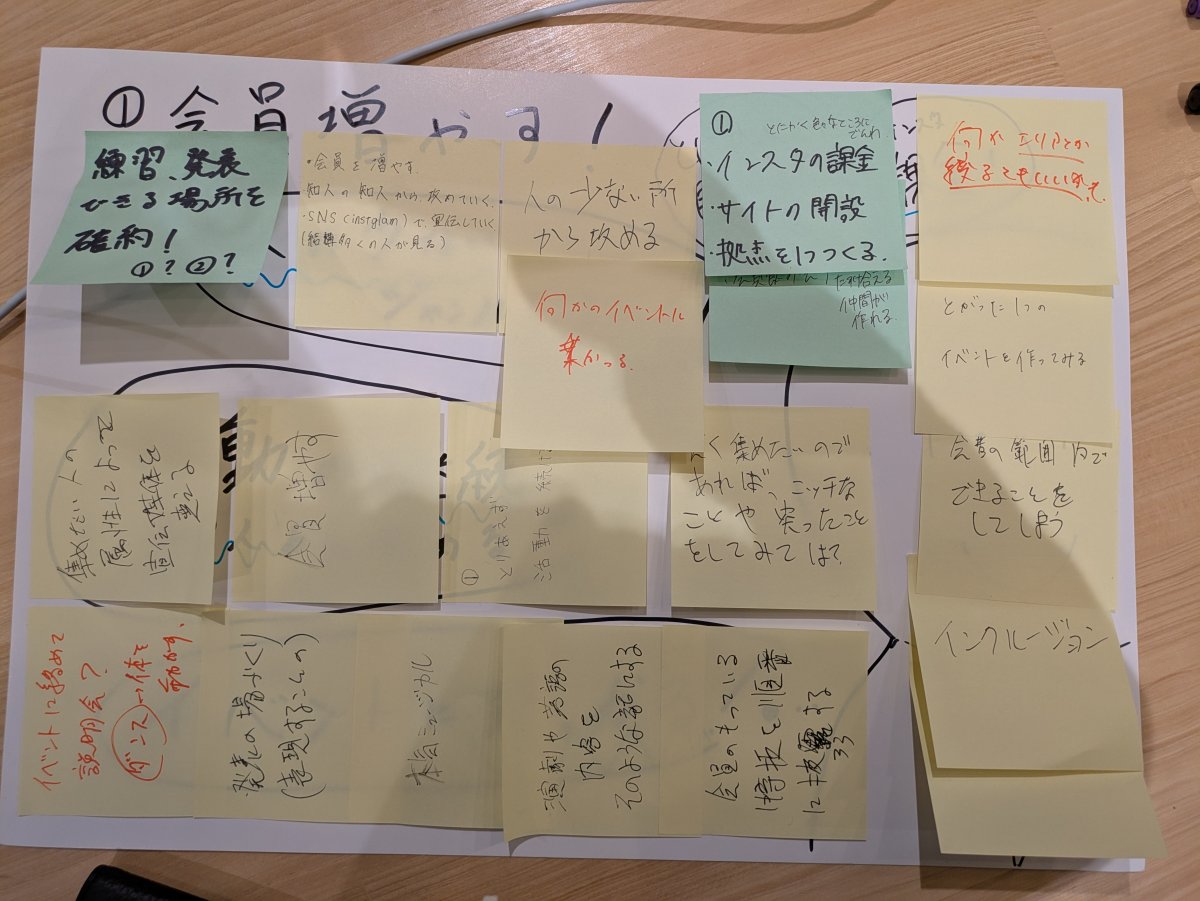 ①会員増やす！
練習、発表
できる場所を
確約！
①？②？
・会員を増やす.
知人の知人から攻めていく.
・SNS（instglam）で宣伝していく
（結構多くの人が見る）
人の少ない所
から攻める
何かのイベントに
乗かつる.
①
とにかく色々なところに
でんわ
・インスタの課金
・サイトの開設
・拠点を1つつくる.
拾える
仲間が
作れる.
何か エリアとか
絞る
とがった1つの
イベントを作ってみる
集めたい人の
属性によって
宣伝媒体を
変える
会員増やす
①
とりあえず
活動を続け
集めたいので
あれば、ニッチな
ことや 変ったこと
をしてみては？
会費の範囲内で
できることを
してしまう
イベントに絡めて
説明会？
ダンス→体を
動かす.
発表の場づくり
（表現することの）
本気ミュージカル
演劇や落語の
内容を
そのような話にする
会員のもっている
特技を順番
に披露する
インクルージョン